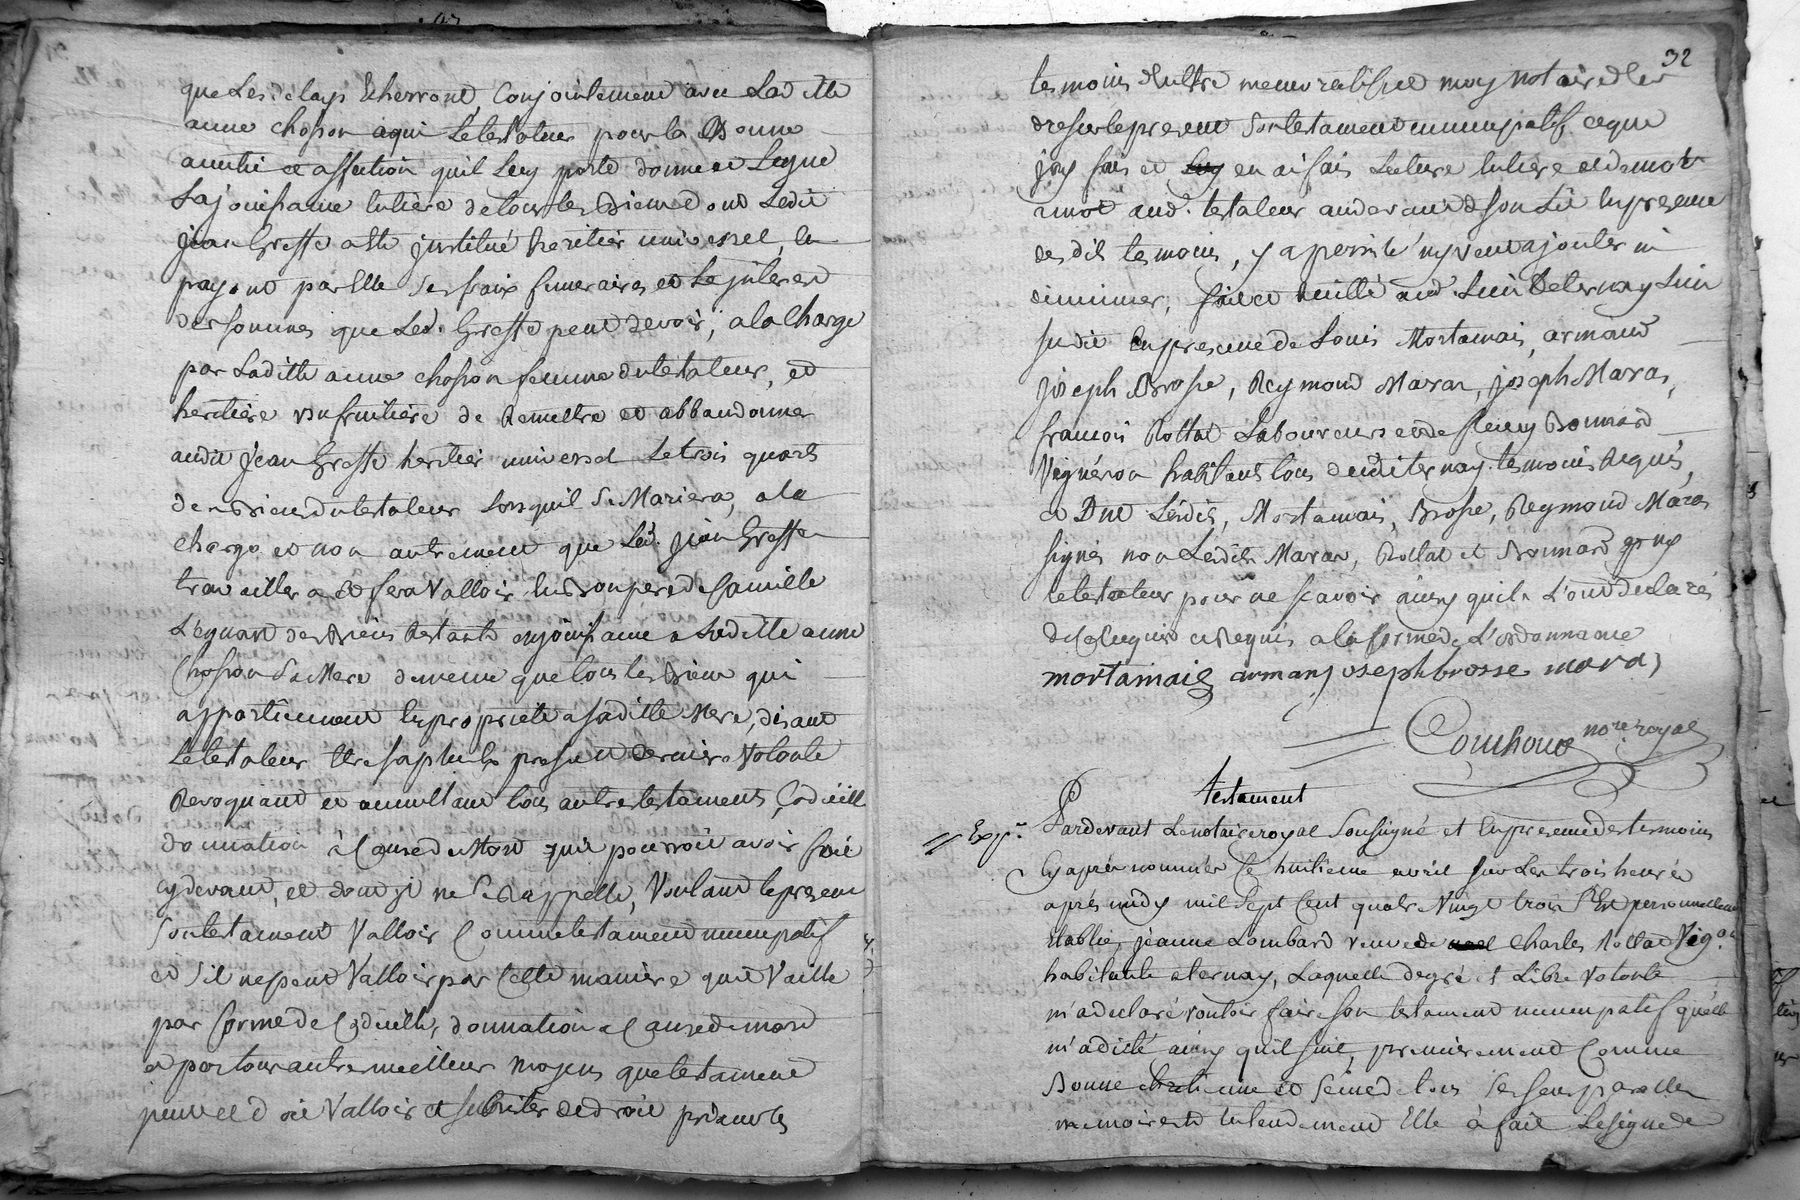 que Les delays Echerront, Conjointement avec Laditte
anne chosson aqui Le testateur pour la Bonne
amitié et affection quil Luy porte donne et Legue
La jouissance Entiere de tous les Biens dont Ledit
jean Gresse a Eté justitué heritier universel, En
payant par Elle Ses fraix funeraires et Les jnterets
des sommes que Led. Gresse peut devoir, ala Charge
par Laditte anne chosson femme du testateur, et
heritiere usufruitiere de Remettre et abbandonner
audit jean Gresse heritier universel Le trois quarts
des Biens du testateur Lorsquil Se Mariera, ala
charge et non autrement que Led. jean Gresse
travaillera et fera Valloir En Bon pere de famille
L'equart des Biens Restants en jouissance a Laditte anne
Chosson Sa Mere de meme que tous les Biens qui
appartiennent En propriete a Saditte Mere, disant
Le testateur Etre sa presente derniere Volonté
Revoquant et annullant tous autres testaments, Codicille
donnation à Cause de Mort quil pourroit avoir fait
cydevant, et dont ji ne Se Rappelle, Voulant le present
Son testament Valloir Comme testament nuncupatif
et Sil ne peut Valloir par Cette maniere quil Vaille
par forme de Codicille, donnation a Cause de mort
et par tous autres meilleurs moyens que testament
peut et doit Valloir et Subsister de droit priant les
32
temoins d'Estre memoratifs et moy notaire de
dresser le present Son testament nuncupatif, ce que
jay fait et en ai fait Lecture Entiere et de mot
amot aud. testateur audevant de son Lit En presence
desdits temoins, y a persisté n'y veut ajouter ni
diminuer, fait et
Susdit En presence de Louis Mortamais, armand
joseph Brosse, Reymond Maras, joseph Maras,
francois Rollat Laboureurs et de fleury Bonnard
Vigneron habitants tous dudit ternay temoins Requis,
et Ont Lesdits, Mortamais, Brosse, Reymond Maras
signés non Lesdits Maras, Rollat et Bonnard n'y
le testateur pour ne scavoir ainsy quils L'ont declarés
de Ce Enquis et Requis a la forme de L'ordonnance
mortamais armanj osephbrosse maras
Couchoud no.re royal
testament
Exp.é Pardevant Le notaire royal Soussigné et En presence des temoins
Cy apres nommés Ce huitieme avril Sur Les trois heures
aprés midy mil Sept Cent quatre Vingt trois S'Est personnellement
Etablie jeanne Lombard veuve de Charles Rollat Vig.on
habitante a ternay, Laquelle degré et Libre volonté
m'a declaré vouloir faire son testament nuncupatif quelle
m'a dicté ainsy quil suit, premierement Comme
Bonne chretienne et Seine de tous Ses Sens parolle
memoire et Entendement Elle à fait Le signe de